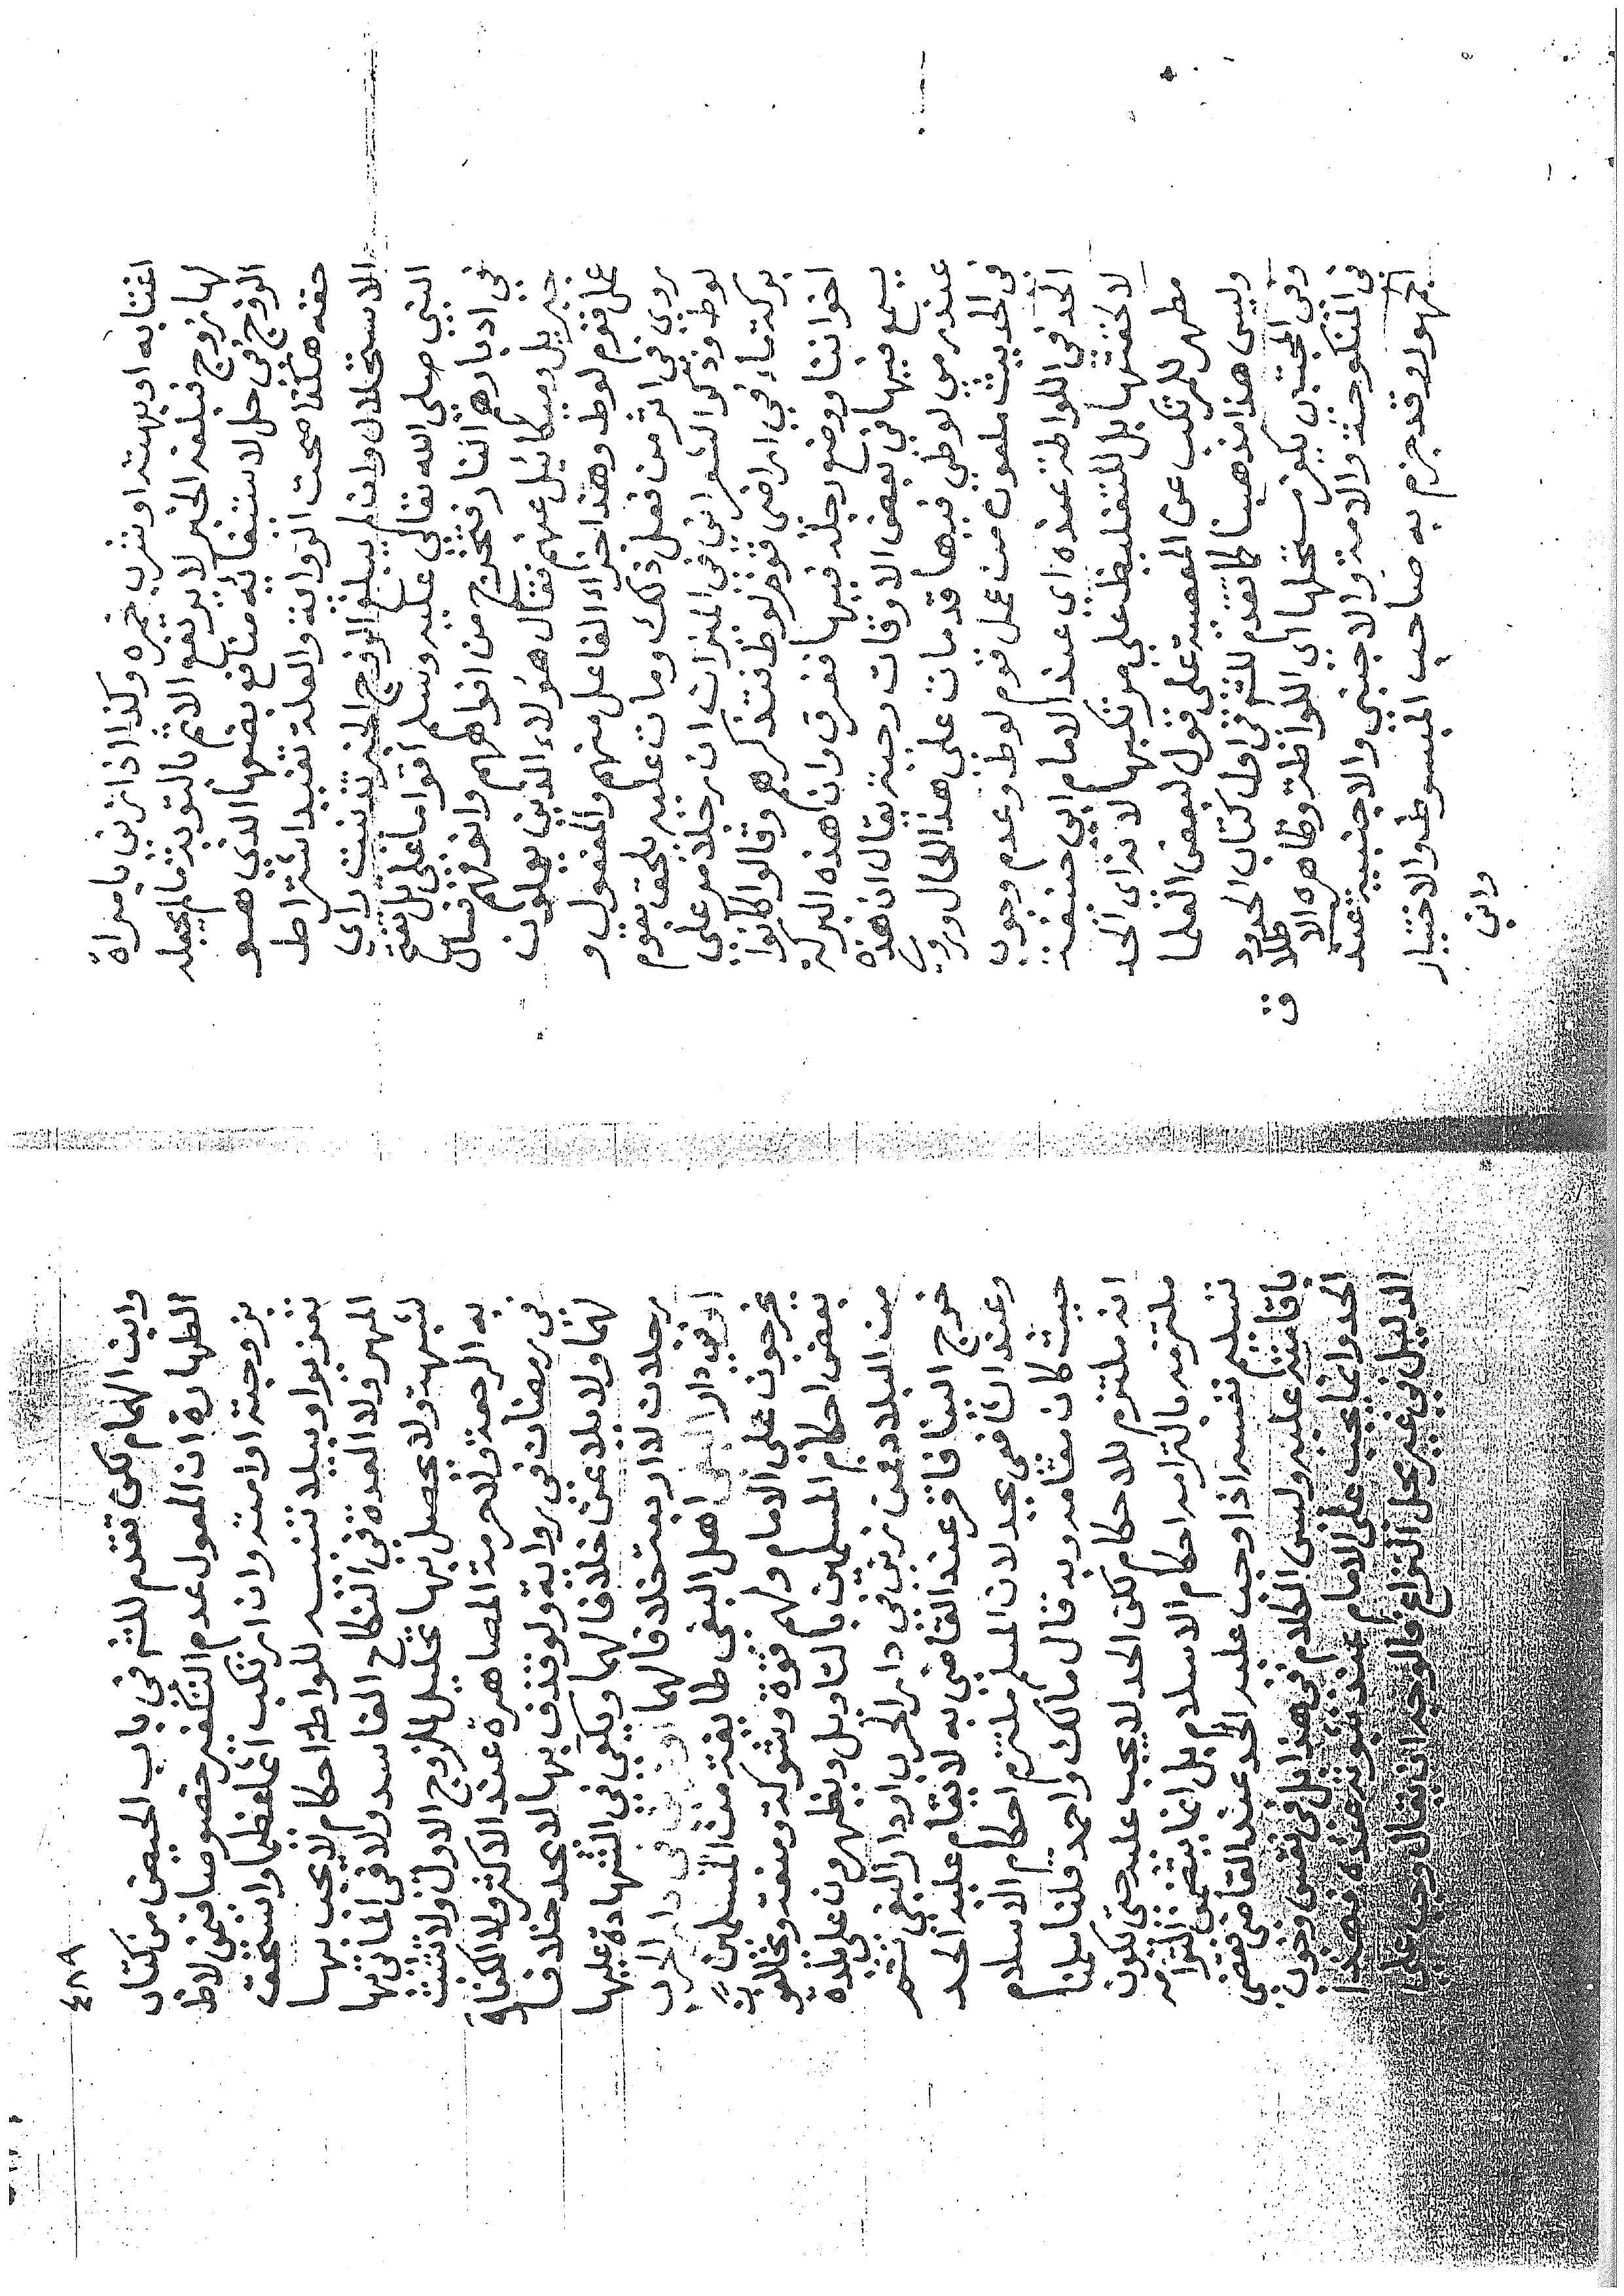 اغتابه او بهته او شرب خمره وكذا اذا زنى بامراة
لها زوج فبلغه الخبر لا يرتفع الاثم بالتوبة ما لم يجعله
الزوج في حل لاستيفائه منافع بضعها الذي هو
حقه هكذا صحت الرواية والعلة تفيد اشتراط
الاستحلال وان لم يبلغ الزوج الخبر تنبيه راى
النبي صلى الله تعالى عليه وسلم اقواما على
في ادبارهم النار فتخرج من افواههم وانوفهم فسال
جبريل وميكائيل عنهم فقال هؤلاء الذين يعملون
عمل قوم لوط وهذا جزاء الفاعل منهم والمفعول و
روي في اثر من فعل ذلك ومات عليه يلحق بقوم
لوط وذكر الشعراني في الميزان ان رجلا مر على
بركة ماء في اراضي قوم لوط فتذكرهم وقال كانوا
اخواننا ووضع رجله فيها فغرق وان هذه البركة
يسمع فيها في بعض الاوقات وجبة يقال ان هذه
عند رمي لوطي فيها قد مات على هذا الحال وروي
في الحديث ملعون من عمل عمل قوم لوط وعدم وجوب
الحد في اللواطة عنده اي عند الامام ابي حنيفة
لا لخفتها بل للتغليظ على مرتكبها لانه اي الحد
مطهر للمرتكب عن المعصية على قول لبعض العلما
وليس هذا مذهبنا كما تقدم للشم في اول كتاب الحدود
وفي المجتبى يكفر مستحلها اى اللواطة وظاهره الاطلاق
في المنكوحة والامة والاجنبي والاجنبية عند
الجمهور وقد جزم به صاحب المبسوط والاختيار
وابن
٤٨٩
وابن الهمام لكن تقدم للشم في باب الحيض من كتاب
الطهارة ان المعول عدم التكفير خصوصا فيمن لاط
بزوجته او امته وان ارتكب اثما عظيما واستحق
تعزيرا وبيلا تتمة للواطة احكام لا يجب بها
المهر ولا العدة في النكاح الفاسد ولا في الماتي بها
لشبهة ولا يحصل بها تحليل للزوج الاول ولا تثبت
به الرجعة ولا حرمة المصاهرة عند الاكثر ولا الكفارة
في رمضان في رواية ولو قذف بها لا يحد خلافا
لهما ولا يلاعن خلافا لهما ويكفي في الشهادة عليها
رجلان لا اربعة خلافا لهما او زنى في دار الحرب
او في دار البغي اهل البغي طايفة من المسلمين
يخرجون على الامام ولهم قوة وشوكة ومنعة ويخالفون
بعض احكام المسلمين بالتاويل ويظهرون على بلدة
من البلاد فمن زنى في دار الحرب او دار البغي ثم
خرج الينا فاقر عند القاضي به لا يقام عليه الحد
وعند الشافعي يحد لان المسلم ملتزم احكام الاسلام
حيث كان مقامه وبه قال مالك واحمد قلنا سلمنا
انه ملتزم للاحكام لكن الحد لا يجب عليه حتى يكون
ملتزمه بالتزامه احكام الاسلام بل انما يتضمن التزامه
تسليم نفسه اذا وجب عليه الحد عند القاضي فقضى
باقامته عليه وليس الكلام في هذا بل في نفس وجوب
الحد وانما يجب على الامام عند ثبوته عنده فهذا
الدليل في غير محل النزاع فالوجه ان يقال وجب على